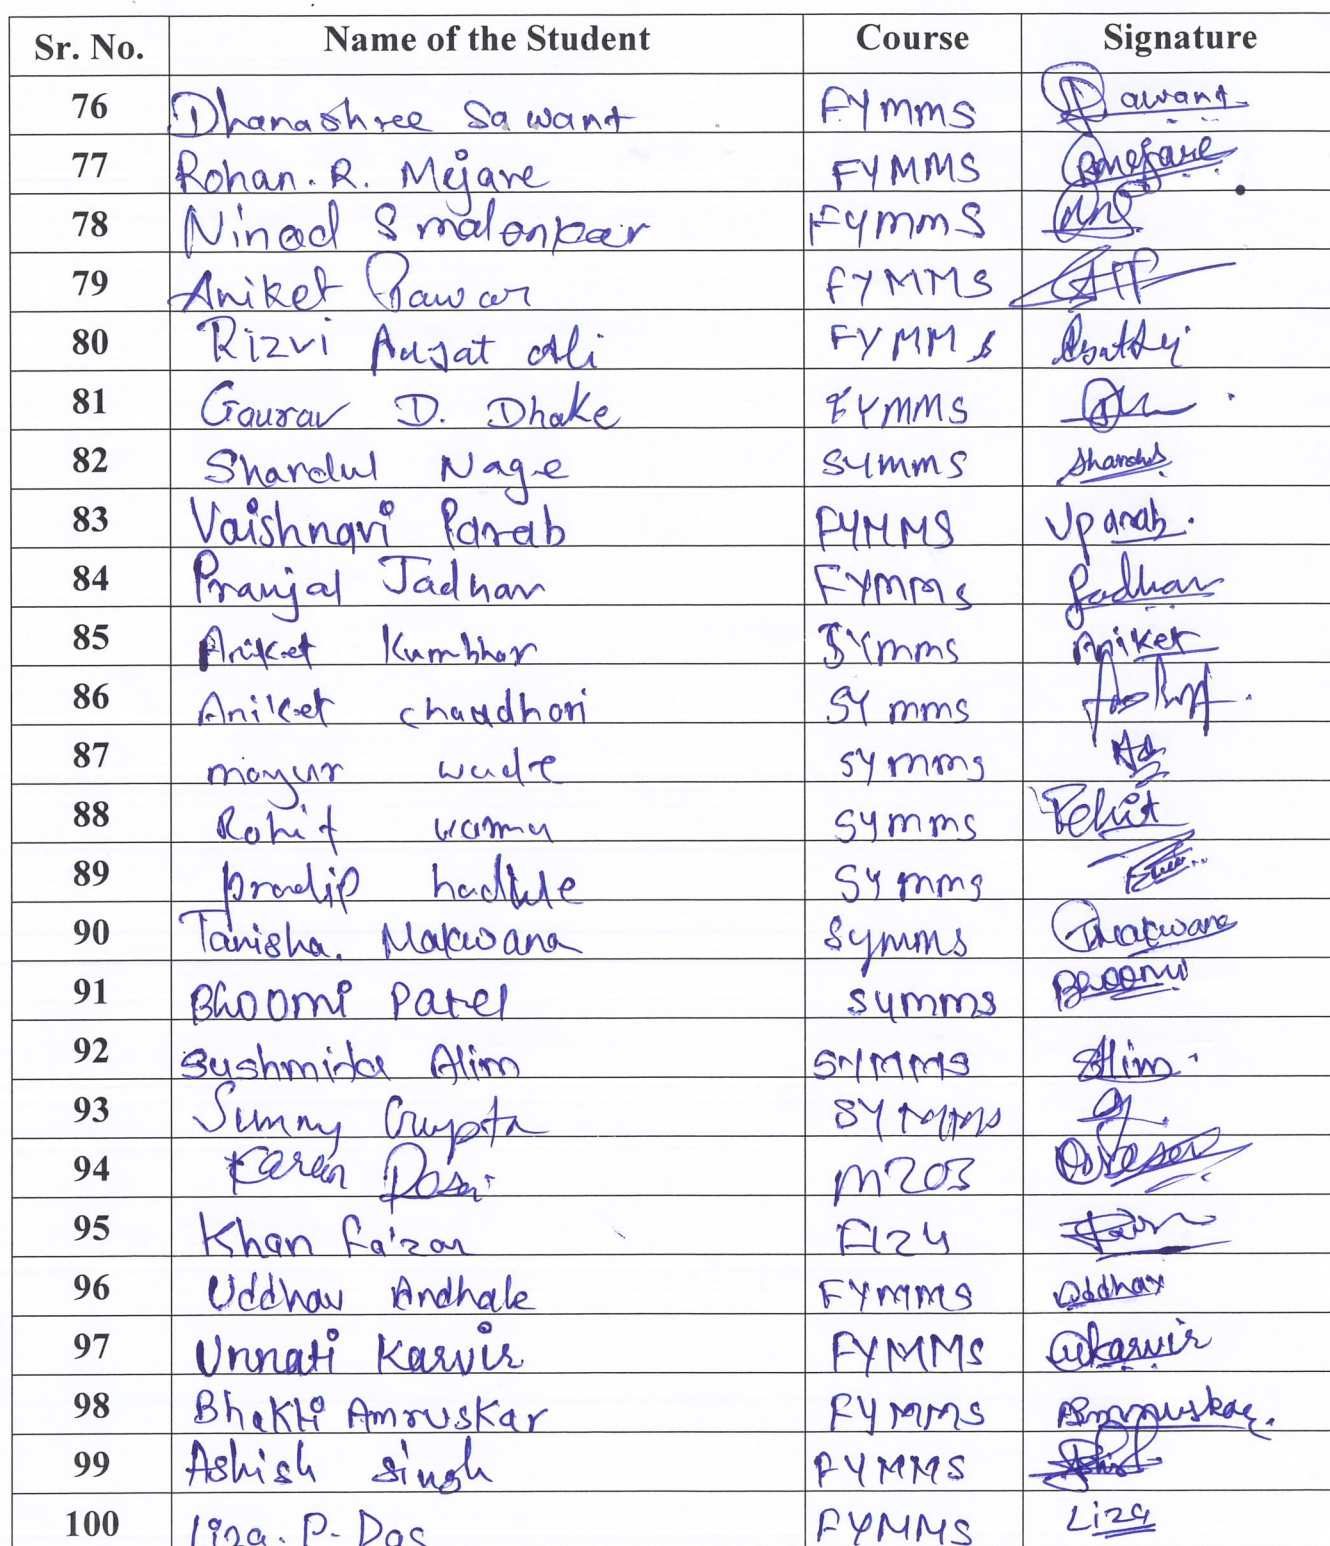 Sr. No. Name of the Student Course Signature
76 Dhanashree Sawant FYmms Sawant
77 Rohan. R. Mejare FYMMS Rmejare
78 Ninad S malonkar FYmmS
79 Aniket Pawar FYMMS
80 Rizvi Ausat Ali FYMMS
81 Gaurav D. Dhake FYMMS
82 Shardul Nage SYmms Shardul
83 Vaishnavi Parab FYMMS VParab.
84 Pranjal Jadhav FYmms Jadhav
85 Aniket Kumbhar SYmms Aniket
86 Aniket chaudhari SY mms
87 mayur wade SY mms
88 Rohit SYmms Rohit
89 pradip SY mms
90 Tanisha. Makwana Symms Tmakwana
91 Bhoomi Patel symms Bhoomi
92 Sushmita Alim SYMMS SAlim.
93 Sunny Gupta SYMMS
94 Karan Desai m203
95 Khan Faizan F124
96 Uddhav Andhale FYmms Uddhav
97 Unnati Karvir FYMMS Ukarvir
98 Bhakti Amruskar FYMMS Amruskar.
99 Ashish Singh FYMMS
100 Liza. P. Das FYMMS Liza